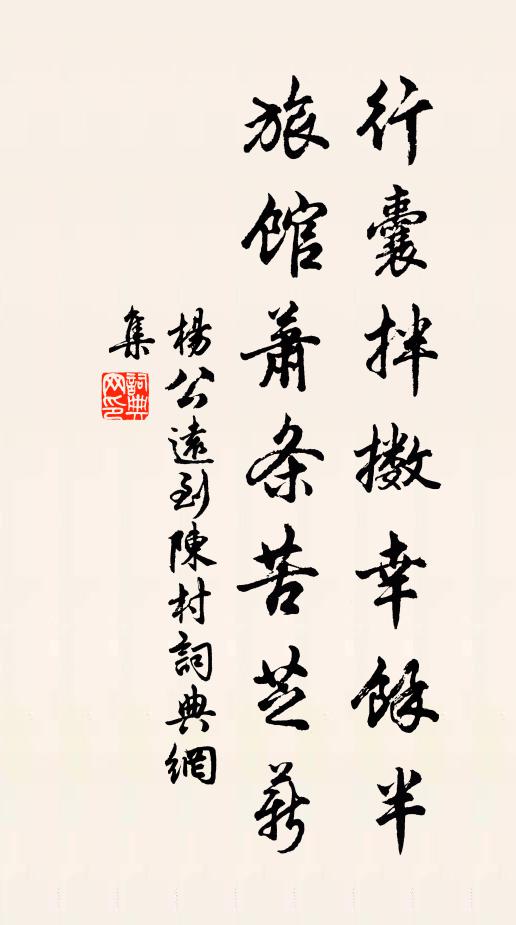 行囊拌擻幸餘半
旅館蕭条苦芝薪
楊公遠到陳村詞典網
集
詞典网印